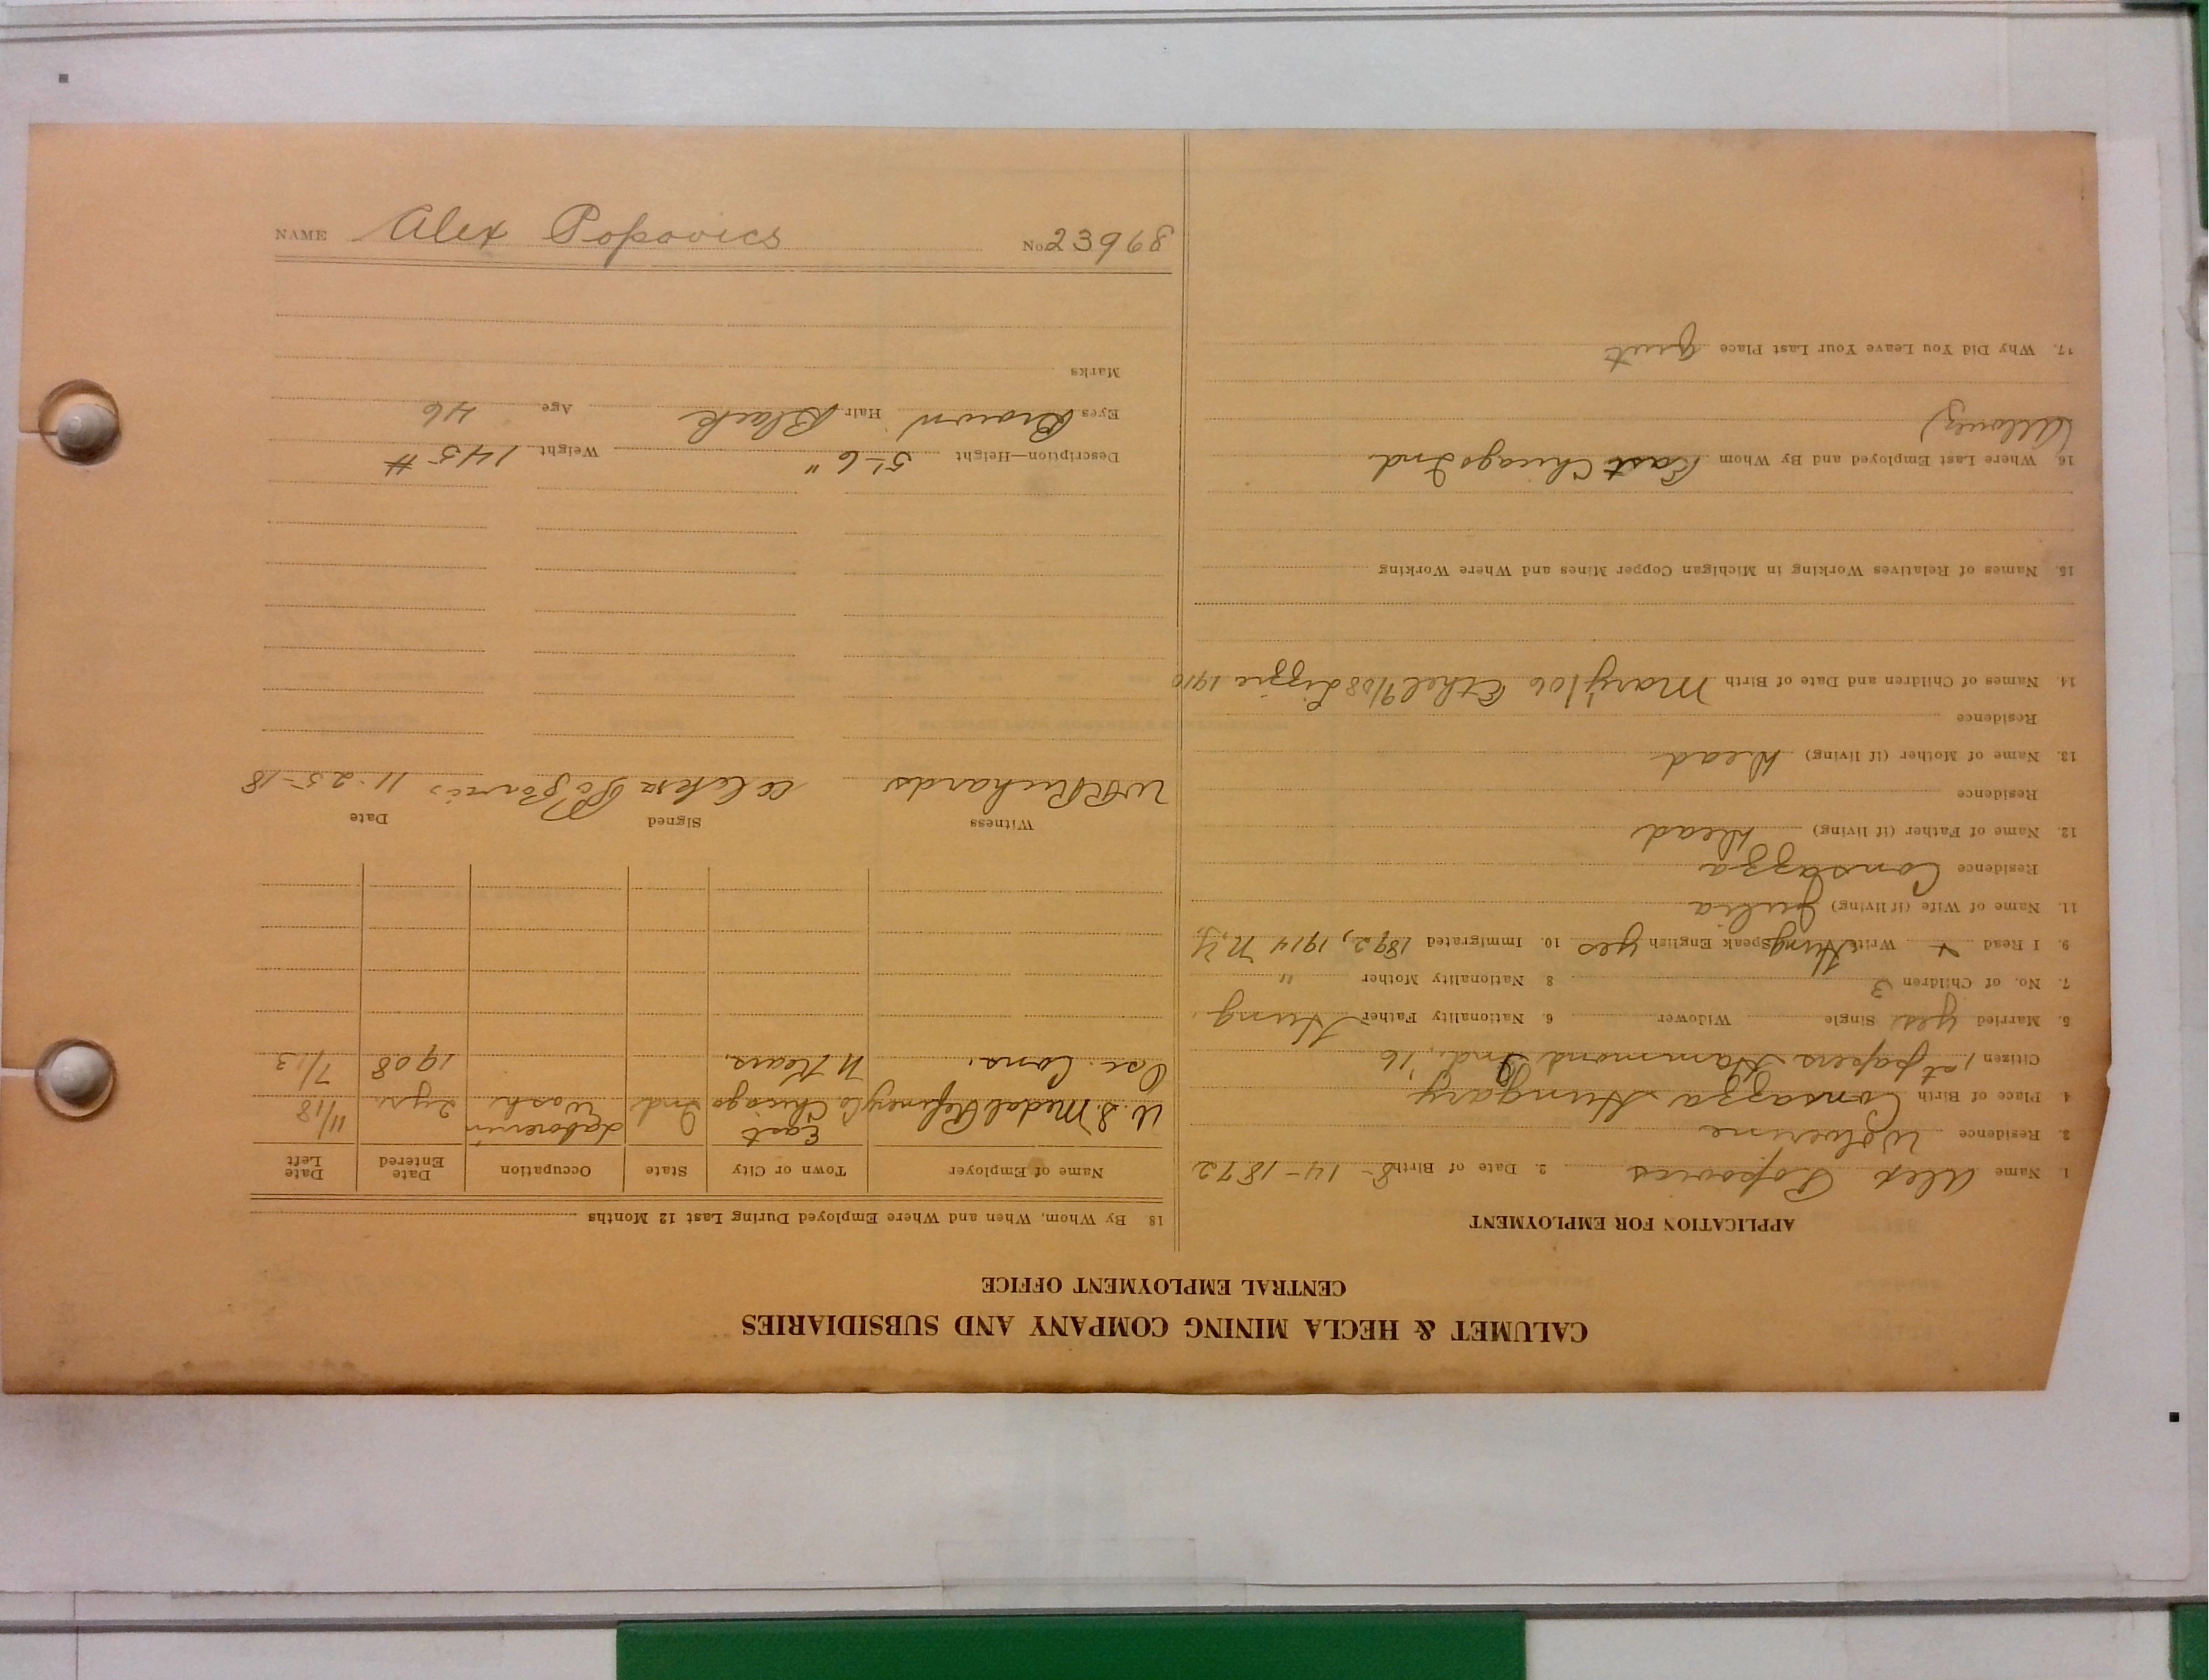 CALUMET & HECLA MINING COMPANY AND SUBSIDIARIES
CENTRAL EMPLOYMENT OFFICE
APPLICATION FOR EMPLOYMENT
1. Name Alex Popovics 2. Date of Birth 8-14-1872
3. Residence Wolverine
4. Place of Birth Consazza Hungary
Citizen 1st papers Hammond Ind, '16
5. Married yes Single Widower 6. Nationality Father Hung
7. No. of Children 3 8 Nationality Mother "
9. I Read + Write Hung Speak English yes 10. Immigrated 1892, 1914 N.Y.
11. Name of Wife (if living) Julia
Residence Consazza
12. Name of Father (if living) Dead
Residence
13. Name of Mother (if living) Dead
Residence
14. Names of Children and Date of Birth Mary '06 Ethel 9/08 Lizzie 1910
15. Names of Relatives Working in Michigan Copper Mines and Where Working
16. Where Last Employed and By Whom East Chicago Ind.
(Allouez)
17. Why Did You Leave Your Last Place quit
18. By Whom, When and Where Employed During Last 12 Months
Name of Employer Town or City State Occupation Date Entered Date Left
U.S. Medal Refinery Co East Chicago Ind Laborer in Wash 2 yrs. 11/18
Osc. Cons. N Kears. 1908 7/13
Witness Signed Date
W R Richards Aleksa 11-25-18
Description—Height 5'-6" Weight 145 #
Eyes Brown Hair Black Age 46
Marks
NAME Alex Popovics No 23968